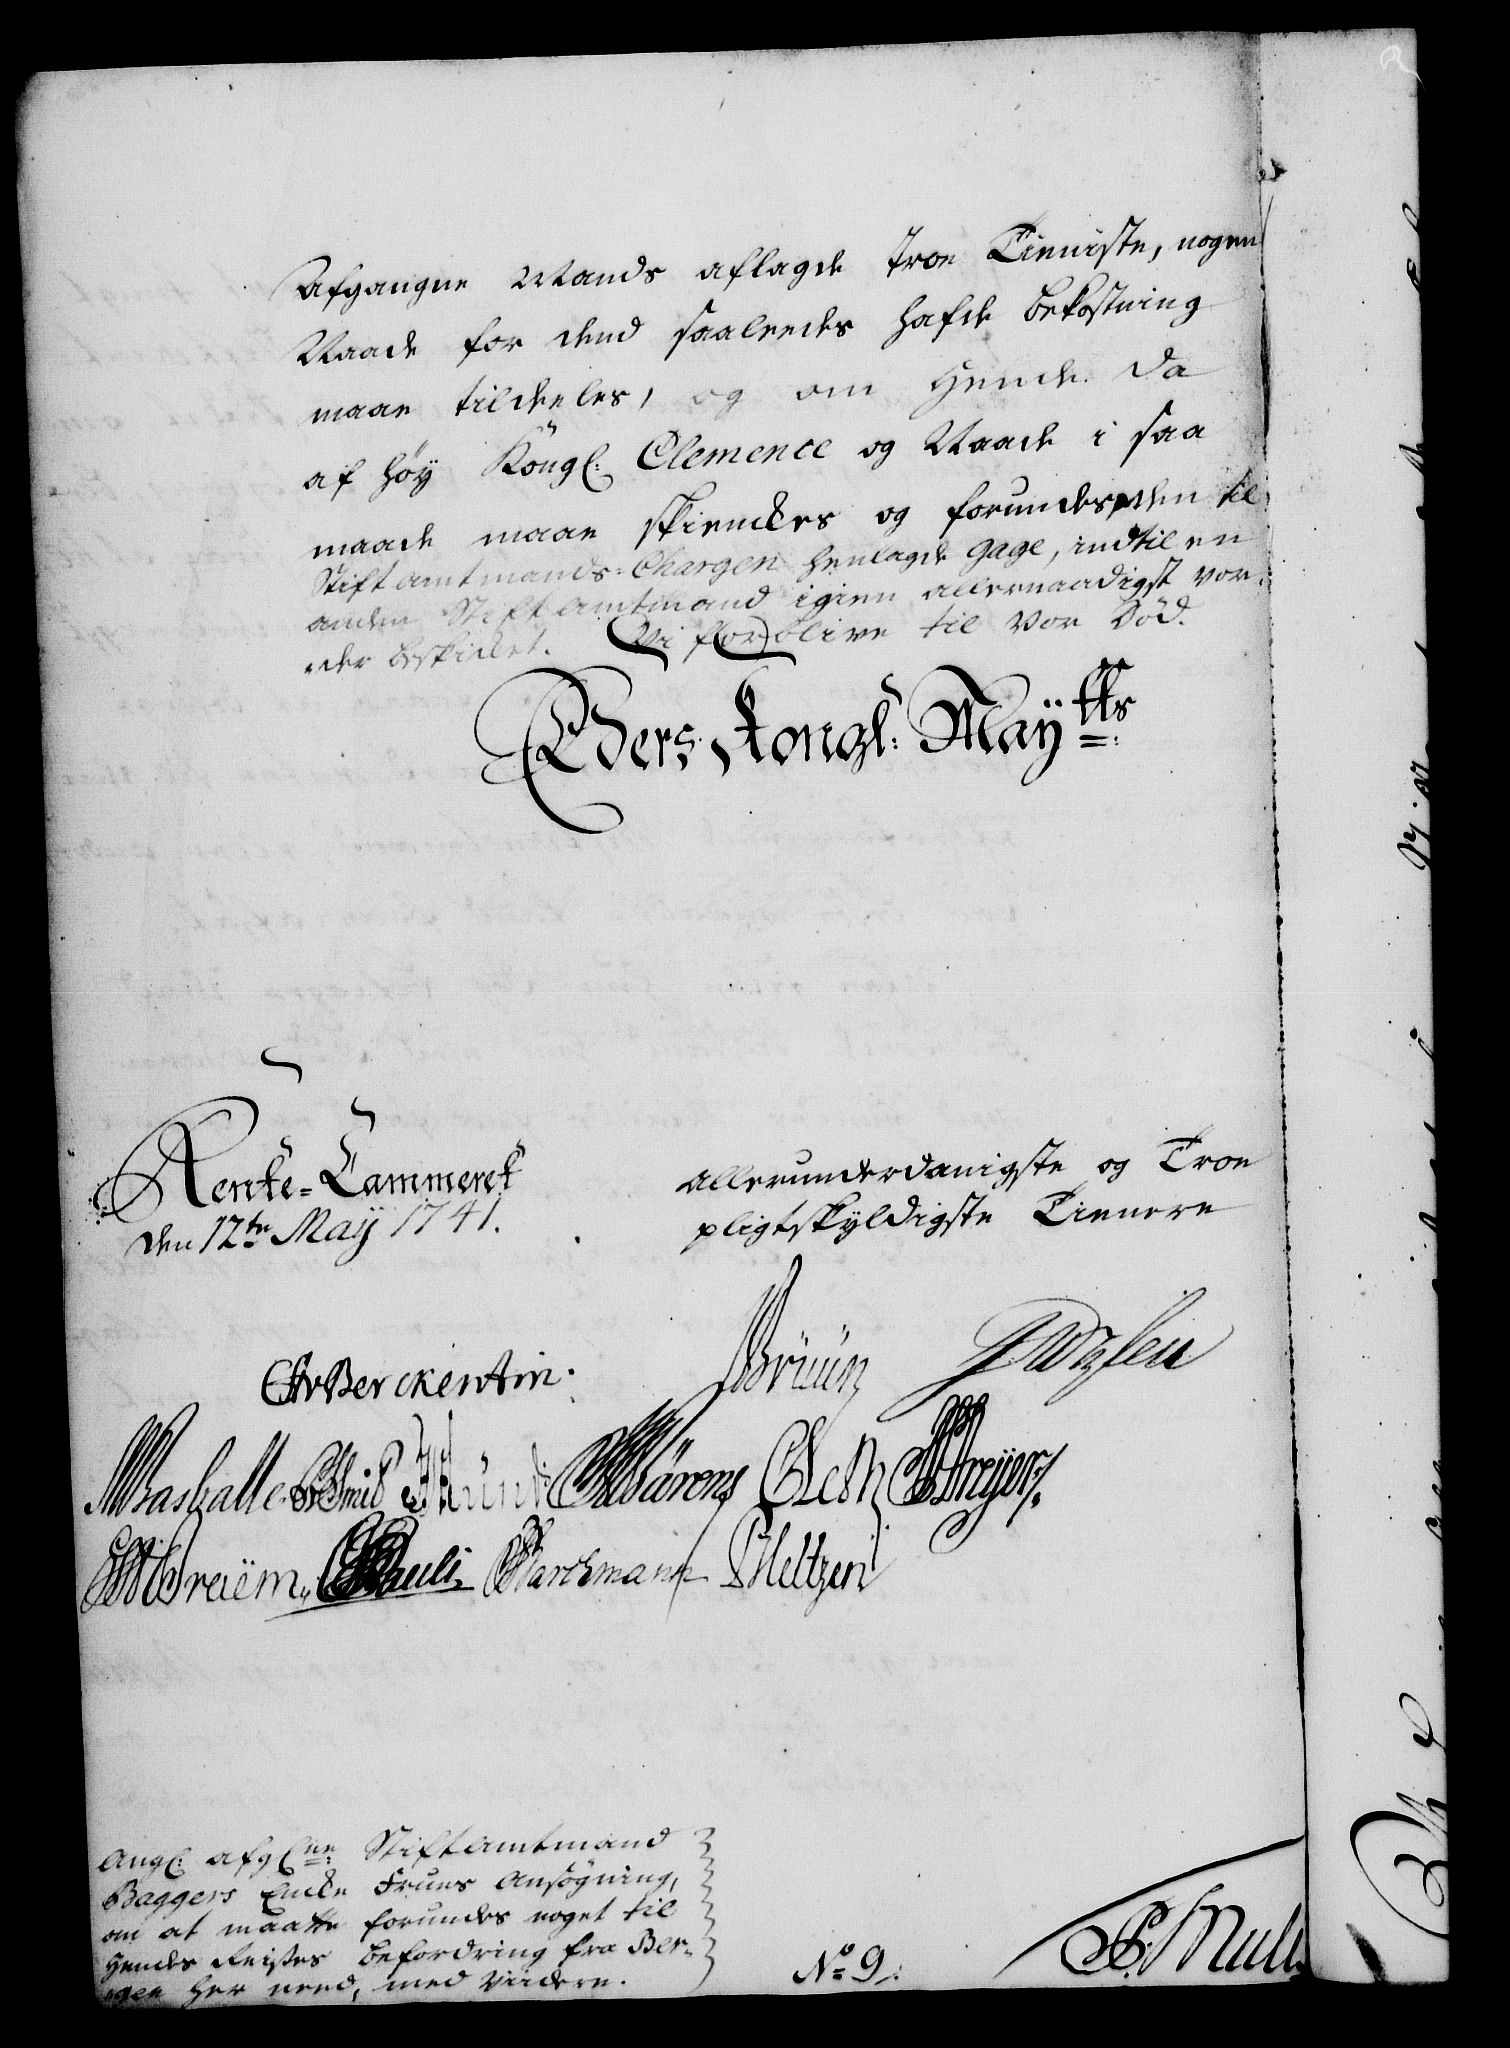 Afgangne Mands aflagde troe Tieniste, nogen
Naade for dend saaleedes hafde bekostning
maae tildeeles, og om Hende da
af høy Kongl: Clemence og Naade i saa
maade maae skienckes og forundes den til
Stiftamtmands-Chargen henlagde gage, indtil en
anden Stiftamtmand igien allernaadigst vor-
der beskicket. Vi forblive til vor Død.
Eders Kongl: Mayᵗᵗˢ:
Rente-Cammeret
den 12te May 1741.
allerunderdanigste og Troe
pligtskyldigste Tienere
CAvBerckentin.
Brüün
Bashalle Smid Münd Bärens Meyer
Pauli Barchmann Meltzen
Ang: afgne: Stiftamtmand
Baggers Encke Frues Ansøgning,
om at maatte forundes noget til
Hendes Reises befordring fra Ber-
gen her need, med Viidere.
No 9.